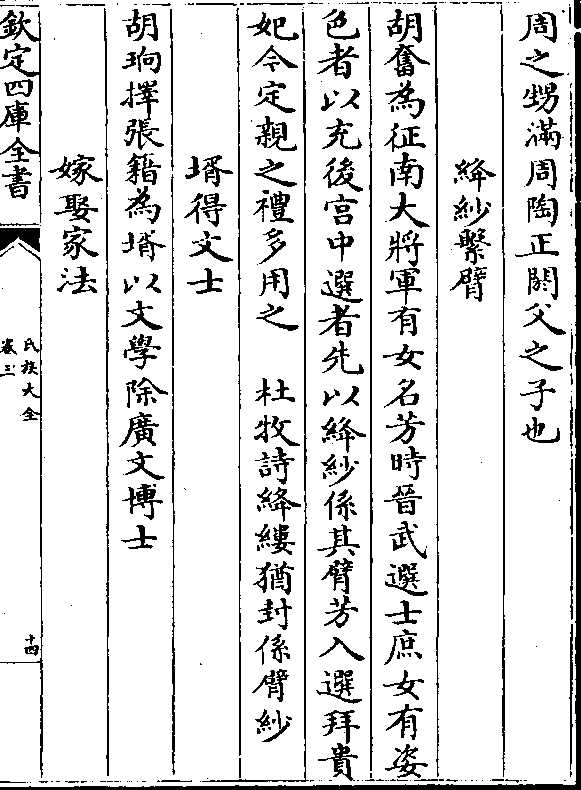 周之甥滿周陶正閼父之子也
絳紗繫臂
胡奮為征南大將軍有女名芳時晉武選士庶女有姿
色者以充後宫中選者先以絳紗係其臂芳入選拜貴
妃今定親之禮多用之　杜牧詩絳縷猶封係臂紗
壻得文士
胡珦擇張籍為壻以文學除廣文博士
嫁娶家法
欽定四庫全書
氏族大全
卷三
十四